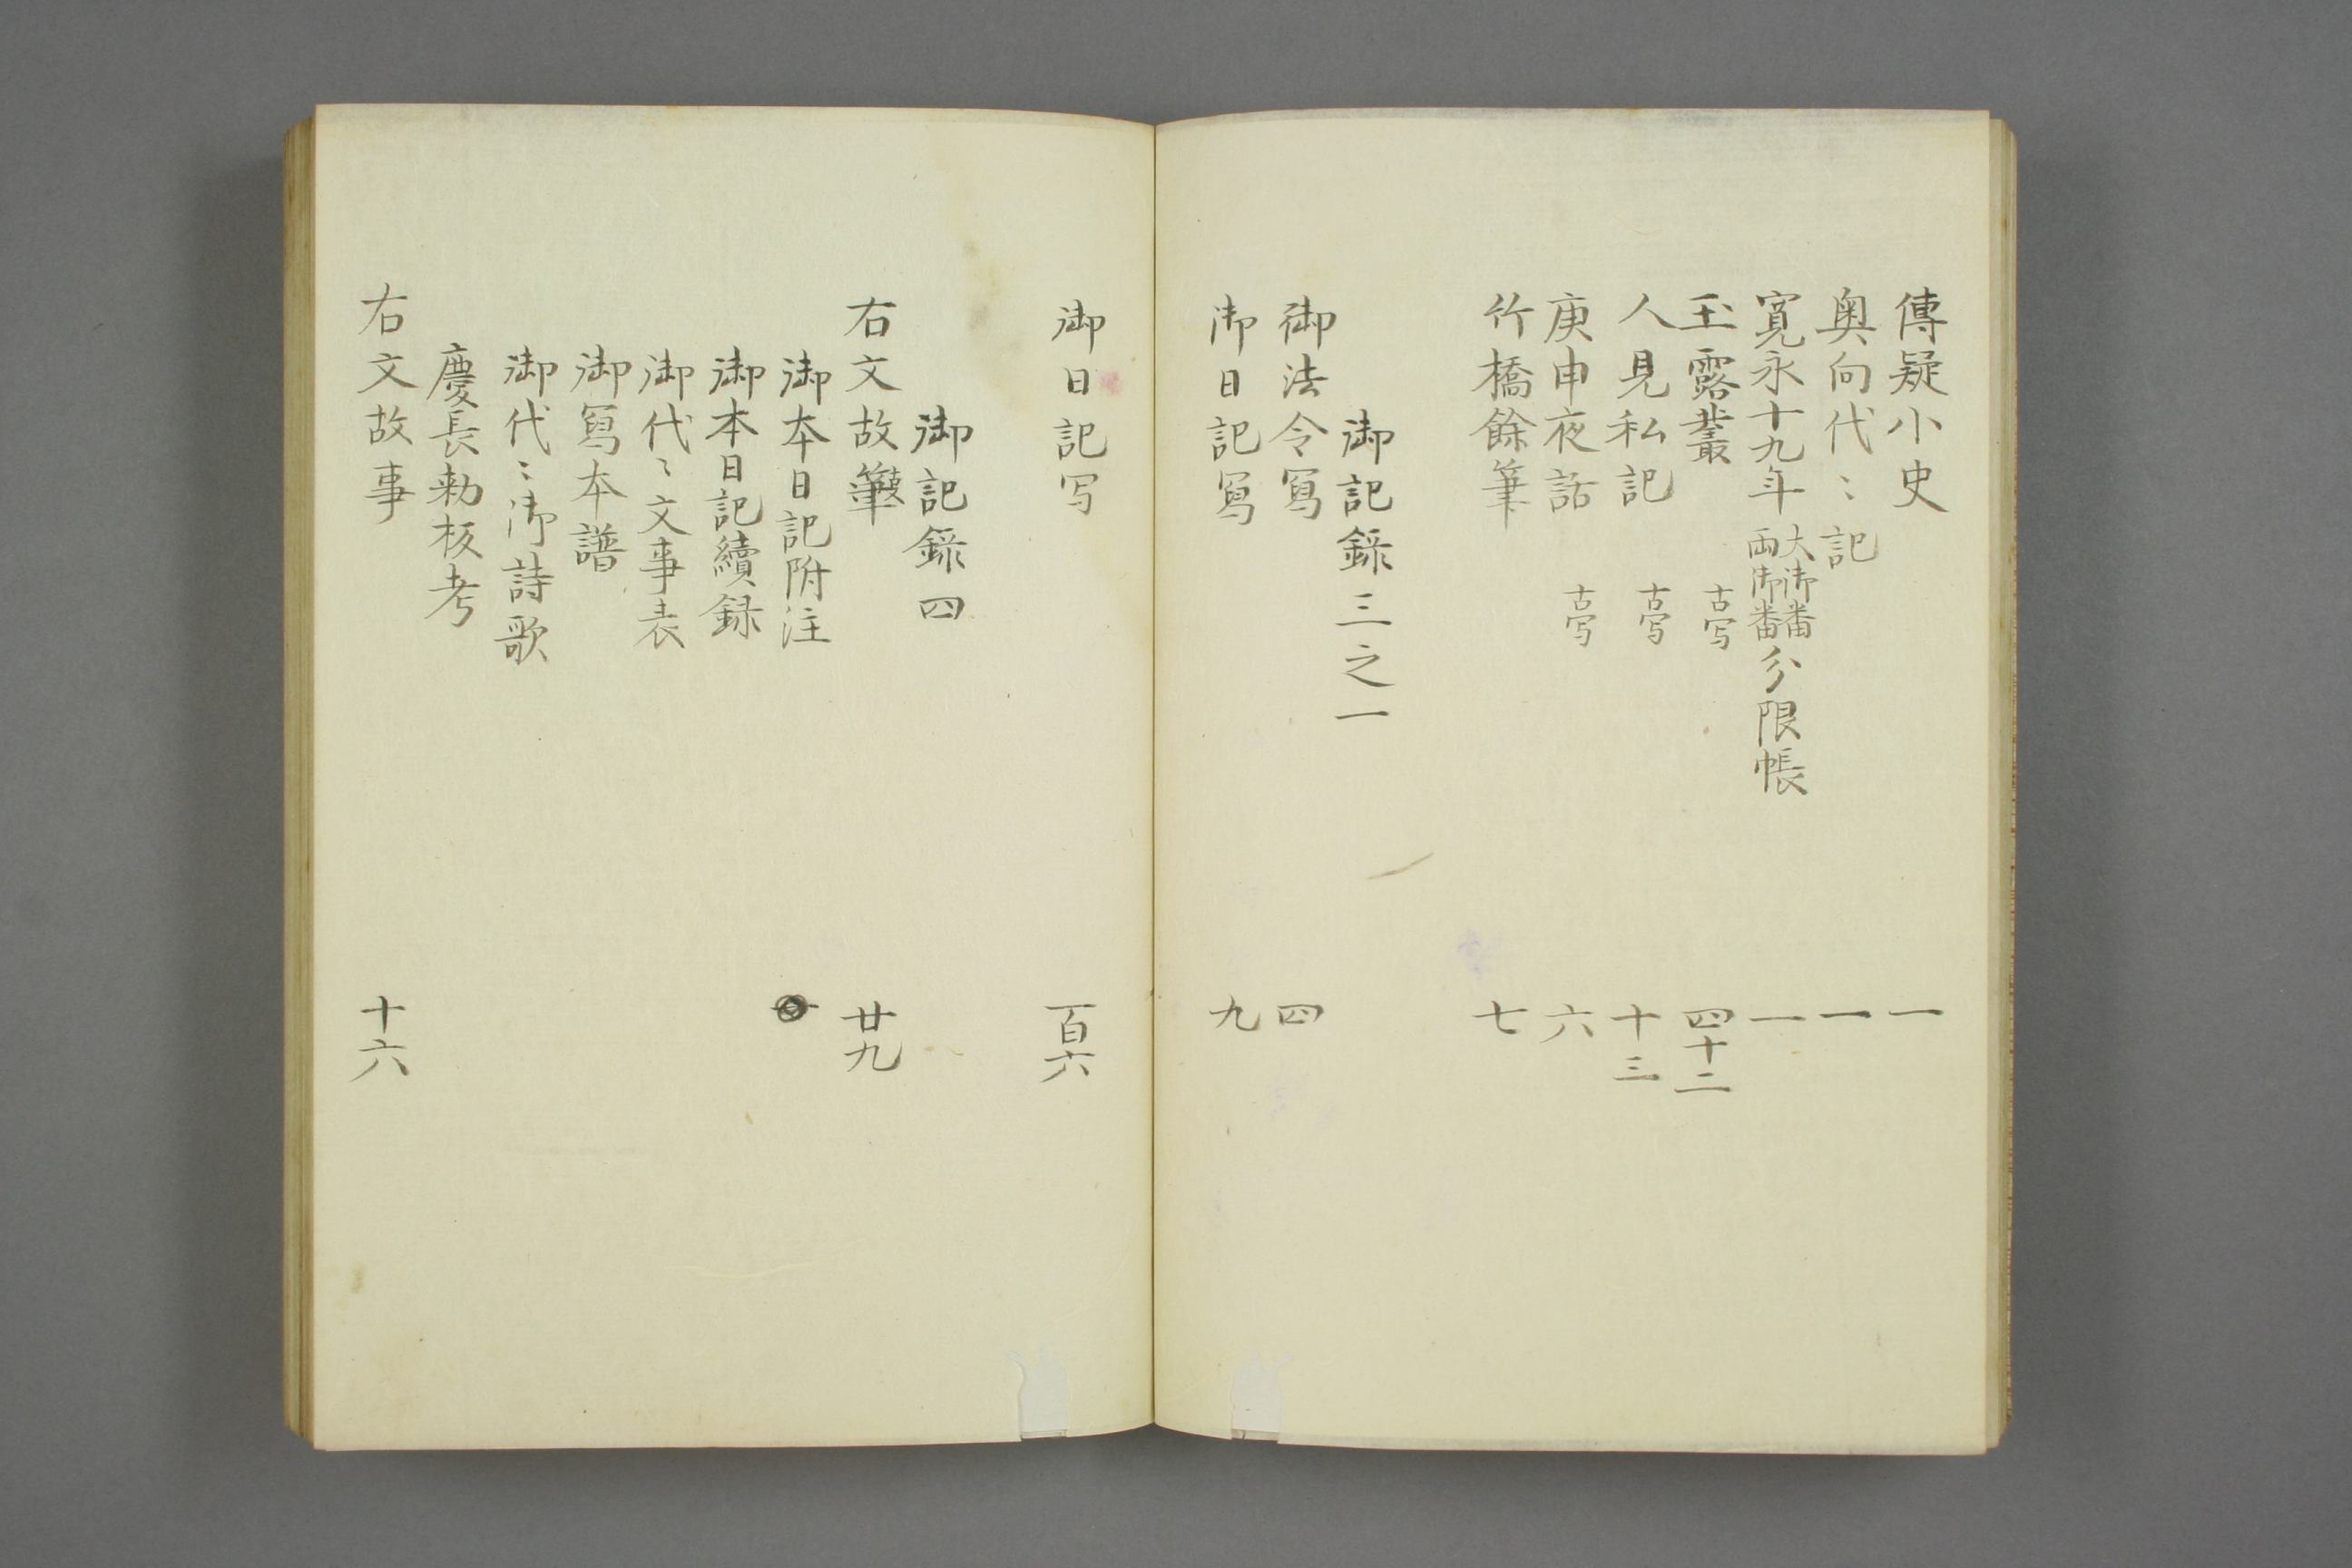 傳疑小史 一
奥向代〻記 一
寛永十九年大御番両御番分限帳 一
玉露叢 古写 四十二
人見私記 古写 十三
庚申夜話 古写 六
竹橋餘筆 七
御記録三之一
御法令寫 四
御日記寫 九
御日記写 百六
御記録四
右文故 廿九
御本日記附注
御本日記續録
御代〻文事表
御寫本譜
御代〻御詩歌
慶長勅板考
右文故事 十六